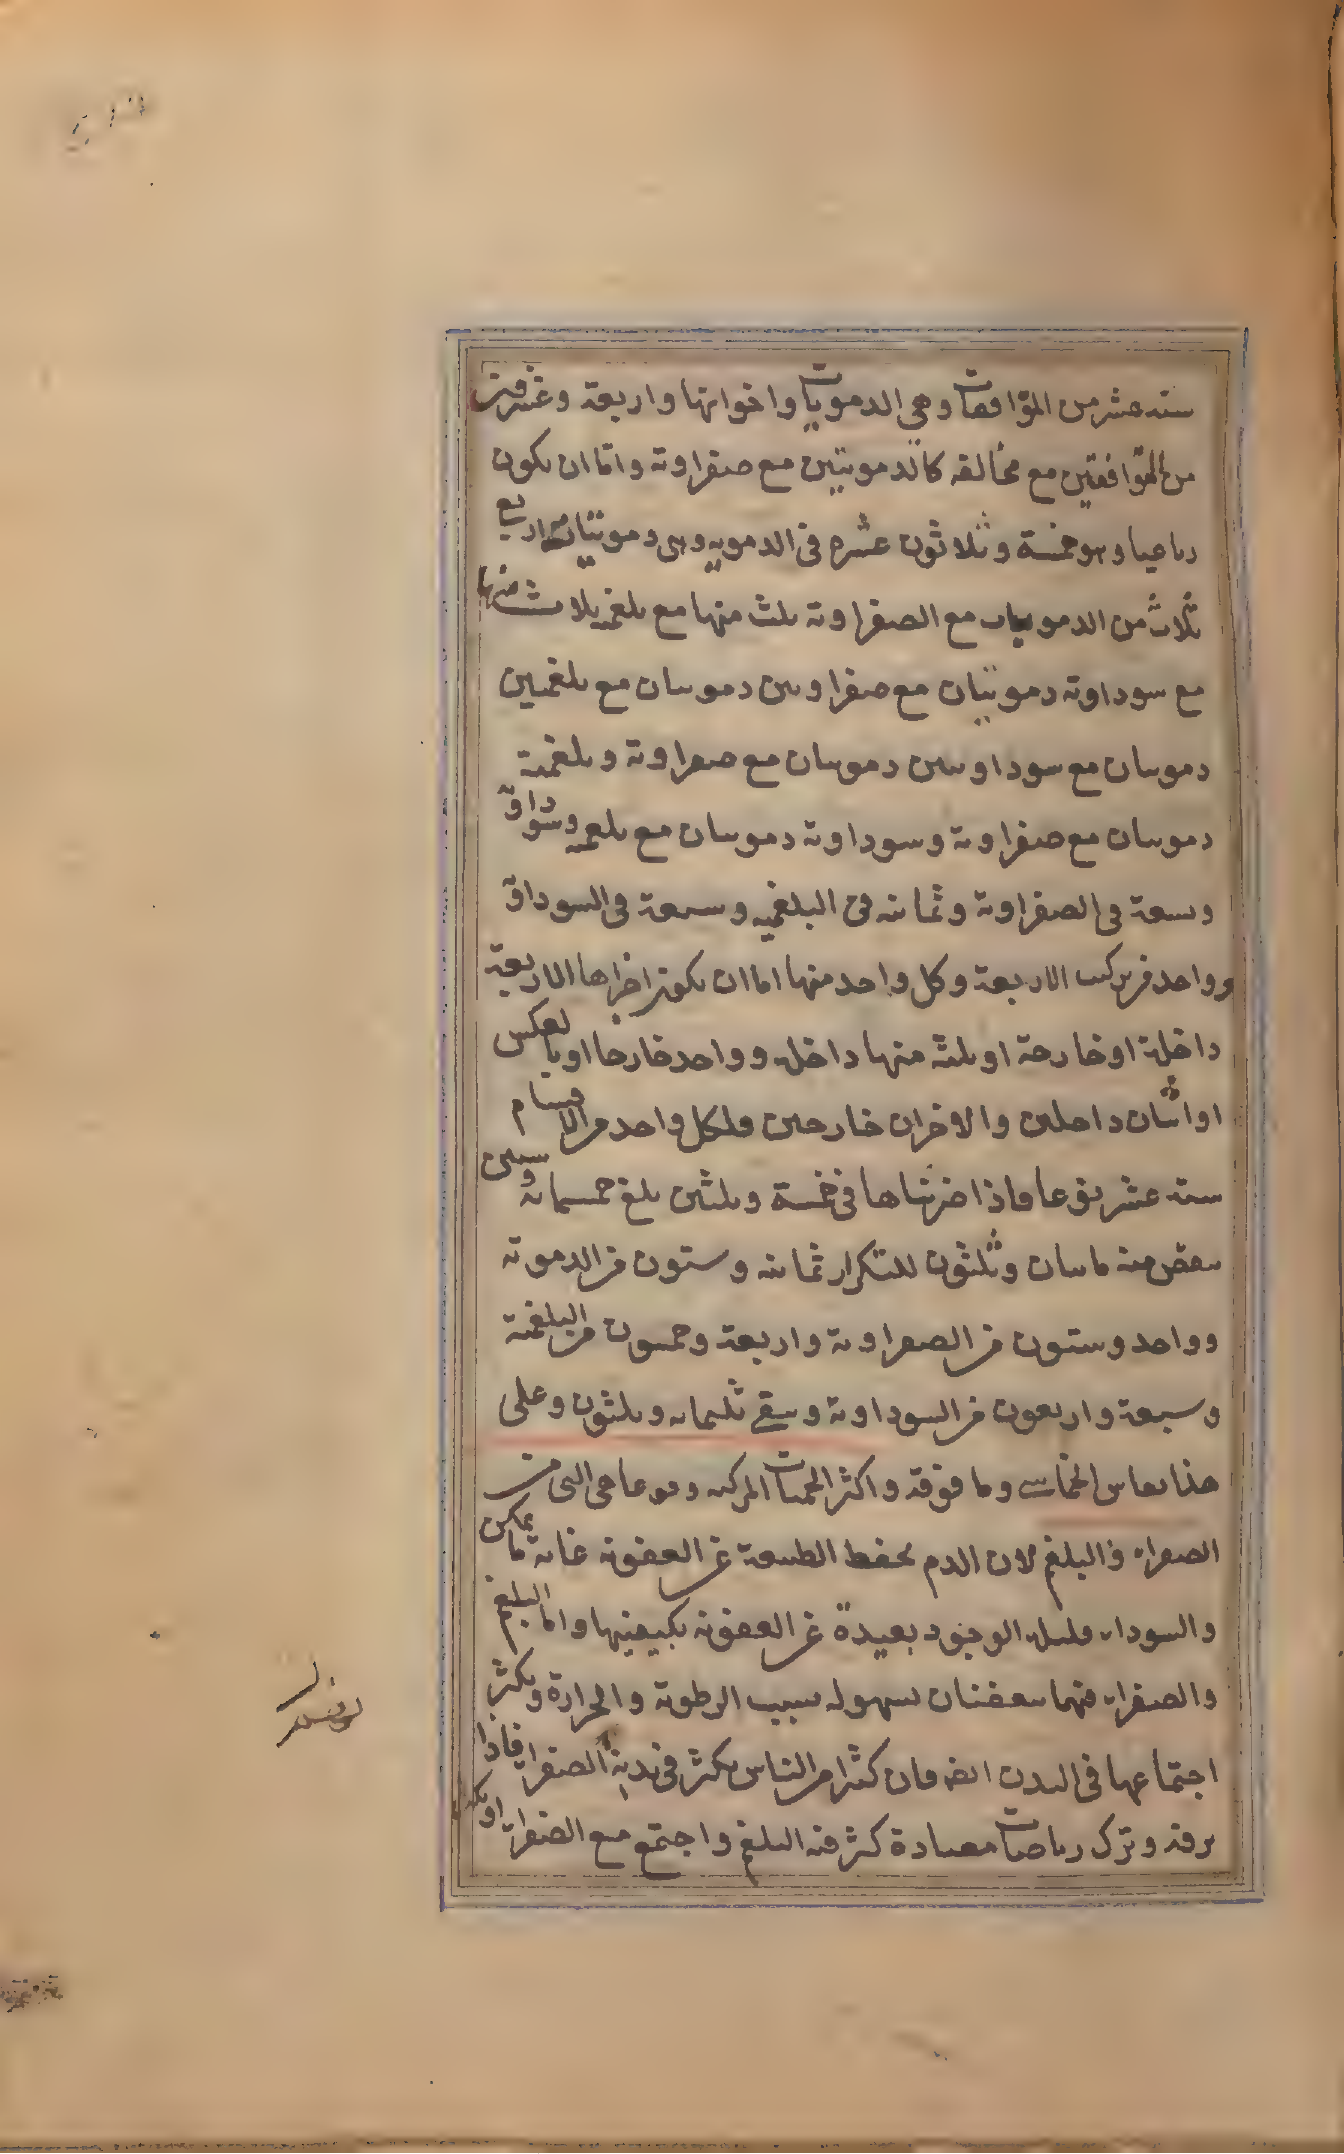 ستة عشر من المتوافقات وهى الدمويات واخواتها واربعة وعشرين
من المتوافقتين مع مخالفه كالدمويتين مع صفراوية واما ان يكون
رباعيا وهو خمسة وثلاثون عشره فى الدمويه وهى دمويات اربع
ثلاث من الدمويات مع الصفراوية ثلث منها مع بلغميه ثلاث منها
مع سوداوية دمويتان مع صفراوين دمويتان مع بلغميين
دمويتان مع سوداوتين دمويتان مع صفراوية وبلغمية
دمويتان مع صفراوية وسوداوية دمويتان مع بلغميه وسوداوية
وتسعة فى الصفراوية وثمانية فى البلغميه وسبعة فى السوداوية
وواحد من تركيب الاربعة وكل واحد منها اما ان يكون اجزاها الاربعة
داخلة او خارجة او ثلثة منها داخله وواحد خارجا او بالعكس
او اثنان داخلين والاخران خارجين ولكل واحد من الاقسام
ستة عشر نوعا فاذا ضربناها فى خمسة وثلثين بلغ خمسمائة وستين
ينقص منه مايتان وثلثون للتكرار ثمانية وستون من الدموية
وواحد وستون من الصفراوية واربعة وخمسون من البلغمية
وسبعة واربعون من السوداوية وبقى ثلثمائه وثلثون وعلى
هذا يقاس الخماسى وما فوقه واكثر الحميات المركبه وقوعا هى التى من
الصفراء والبلغم لان الدم يحفظ الطبيعة عن العفونه غاية ما يمكن
والسوداء قليلة الوجود بعيدة عن العفونه بكيفيتها واما البلغم
والصفراء فهما يتعفنان بسهوله بسبب الرطوبة والحرارة ويكثر
اجتماعهما فى البدن ايضا فان كثيرا من الناس يكثر فى بدنه الصفرا فاذا
ترفه وترك رياضات معتادة كثر فيه البلغم واجتمع مع الصفراء او يكون